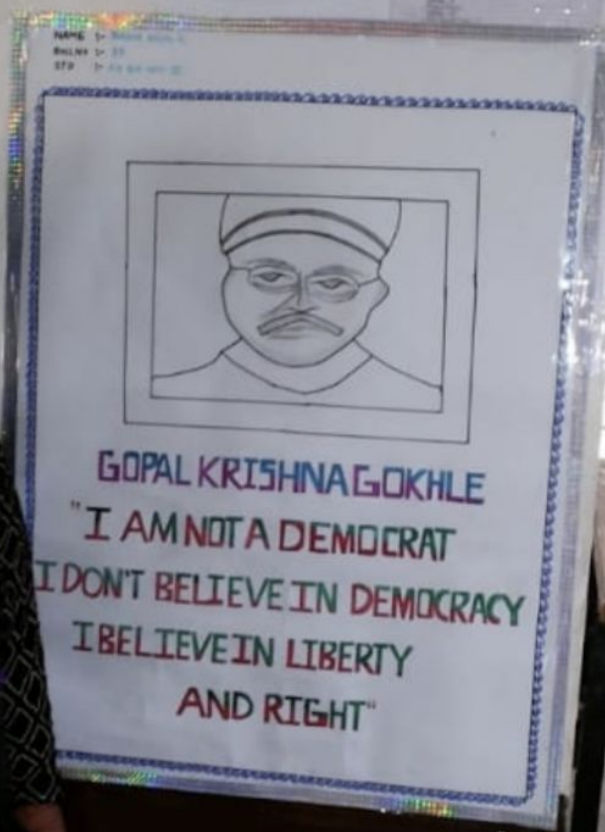 NAME :-
ROLL NO :-
STD :-
GOPAL KRISHNA GOKHLE
"I AM NOT A DEMOCRAT
I DON'T BELIEVE IN DEMOCRACY
I BELIEVE IN LIBERTY
AND RIGHT"